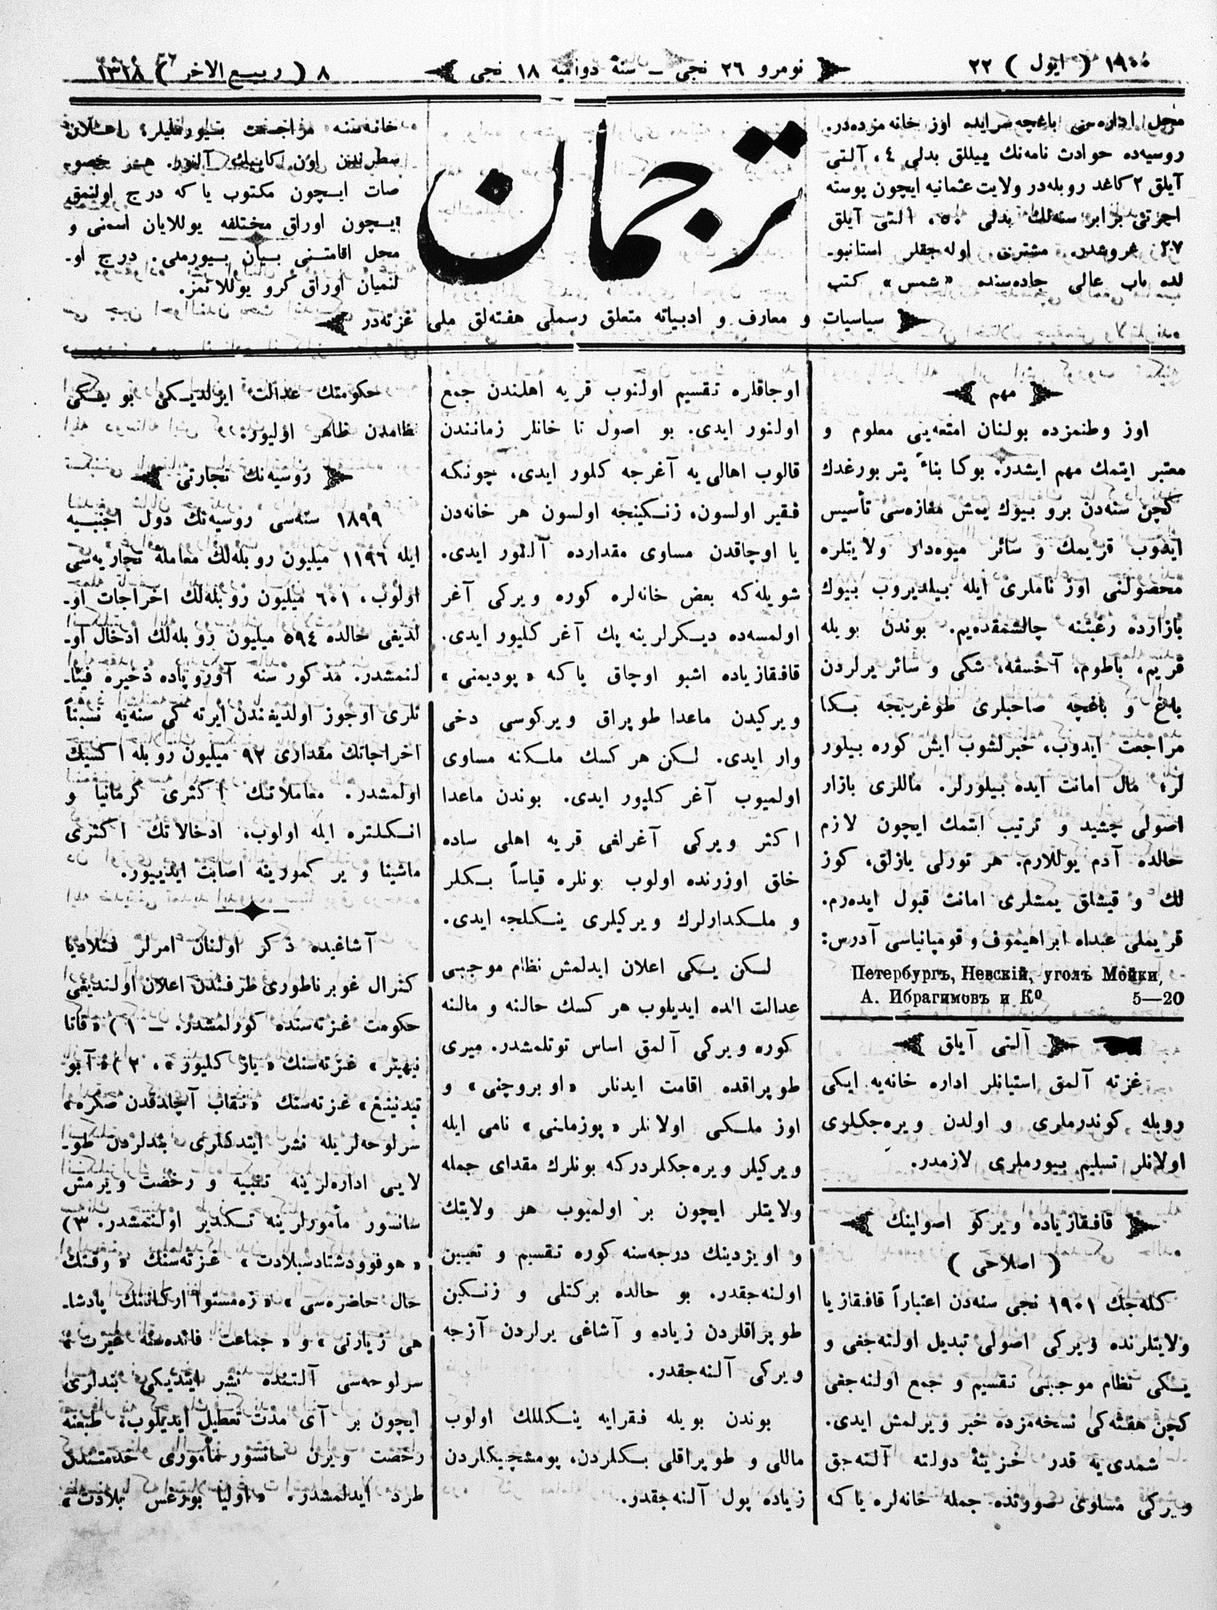 ١٩٠٠ ( ایول ) ٢٢
نومرو ٢٦ نجی — سنهٔ دوامیه ١٨ نجی
٨ ( ربیع الاخر ) ١٣١٨
محل اداره‌سی باغچه‌سرایده اوز خانه مزده‌در.
روسیه‌ده حوادث نامه‌نك ییللق بدلی ٤، آلتی
آیلق ٢ كاغد روبله‌در ولایت عثمانیه ایچون پوسته
اجرتی برابر سنه‌لك بدلی ٥٠، آلتی آیلق
٢٧ غروشدر. مشتری اوله‌جقلر استانبو-
لده باب عالی جاده‌سنده «شمس» كتب
ترجمان
خانه‌سنه مراجعت بیورملیلر؛ اعلان
سطرندن اون كاپیك آلنور. هر خصو
صات ایچون مكتوب یا كه درج اولنمق
ایچون اوراق مختلفه یوللایان اسمنی و
محل اقامتنی بیان بیورملی. درج او-
لنمیان اوراق كرو یوللانمز.
سیاسیات و معارف و ادبیاته متعلق رسملی هفته‌لق ملی غزته‌در
مهم
اوز وطنمزده بولنان امتعه‌یی معلوم و
معتبر ایتمك مهم ایشدر. بوكا بناءً پتر بورغدك
كچن سنه‌دن برو بیوك یمش مغازه‌سی تأسیس
ایدوب قریمك و سائر میوه‌دار ولایتلره
محصولنی اوز ناملری ایله بیلدیروب بیوك
بازارده رغبتنه چالشمقده‌یم. بوندن بویله
قریم، باطوم، آخسقه، شكی و سائر یرلردن
باغ و باغچه صاحبلری طوغریجه بكا
مراجعت ایدوب، خبرلشوب ایش كوره بیلور
لر؛ مال امانت ایده بیلورلر. ماللری بازار
اصولی چشید و ترتیب ایتمك ایچون لازم
حالده آدم یوللارم. هر تورلی یازلق، كوز
لك و قیشلق یمشلری امانت قبول ایده‌رم.
قریملی عبدالله ابراهیموف و قومپانیاسی آدرس:
Петербургъ, Невскій, уголъ Мойки,
А. Ибрагимовъ и Ко 5—20
آلتی آیلق
غزته آلمق استیانلر اداره خانه‌یه ایكی
روبله كوندرملری و اولدن ویره‌جكلری
اولانلر تسلیم بیورملری لازمدر.
قافقازیاده ویركو اصولینك
( اصلاحی )
كله‌جك ١٩٠١ نجی سنه‌دن اعتباراً قافقازیا
ولایتلرنده ویركی اصولی تبدیل اولنه‌جغی و
یكی نظام موجبنی تقسیم و جمع اولنه‌جغی
كچن هفته‌كی نسخه‌مزده خبر ویرلمش ایدی.
شمدی‌یه قدر خزینهٔ دولته آلنه‌جق
ویركی مساوی صورتده جمله خانه‌لره یا كه
اوجاقلره تقسیم اولنوب قریه اهلندن جمع
اولنور ایدی. بو اصول تا خانلر زمانندن
قالوب اهالی‌یه آغرجه كلور ایدی. چونكه
فقیر اولسون، زنكینجه اولسون هر خانه‌دن
یا اوجاقدن مساوی مقدارده آلنور ایدی.
شویله‌كه بعض خانه‌لره كوره ویركی آغر
اولمسه‌ده دیكرلرینه پك آغر كلیور ایدی.
قافقازیاده اشبو اوجاق یا كه «پودیمنی»
ویركیدن ماعدا طوپراق ویركوسی دخی
وار ایدی. لكن هر كسك ملكنه مساوی
اولمیوب آغر كلیور ایدی. بوندن ماعدا
اكثر ویركی آغرلغی قریه اهلی ساده
خلق اوزرنده اولوب بونلره قیاساً بكلر
و ملكدارلرك ویركیلری ینكلجه ایدی.
لكن یكی اعلان ایدلمش نظام موجبی
عدالت الده ایدیلوب هر كسك حالنه و مالنه
كوره ویركی آلمق اساس توتلمشدر. میری
طوپراقده اقامت ایدنلر «اوبروچنی» و
اوز ملكی اولانلر «پوزملنی» نامی ایله
ویركیلر ویره‌جكلردركه بونلرك مقدای جمله
ولایتلر ایچون بر اولمیوب هر ولایتك
و اویزدینك درجه‌سنه كوره تقسیم و تعیین
اولنه‌جقدر. بو حالده بركتلی و زنكین
طوپراقلردن زیاده و آشاغی یرلردن آزجه
ویركی آلنه‌جقدر.
بوندن بویله فقرایه ینكللك اولوب
ماللی و طوپراقلی بكلردن، پومشچیكلردن
زیاده پول آلنه‌جقدر.
حكومتك عدالت ایرلدیكی بو یكی
نظامدن ظاهر اولیور.
روسیه‌نك تجارتی
١٨٩٩ سنه‌سی روسیه‌نك دول اجنبیه
ایله ١١٩٦ میلیون روبله‌لك معاملهٔ تجاریه‌سی
اولوب، ٦٠١ میلیون روبله‌لك اخراجات او-
لدیغی حالده ٥٩٤ میلیون روبله‌لك ادخال او-
لنمشدر. مذكور سنه آوروپاده ذخیره فیئا-
تلری اوجوز اولدیغندن ایرته كی سنه‌یه نسبتاً
اخراجاتك مقداری ٩٢ میلیون روبله اكسیك
اولمشدر. معاملاتك اكثری كرمانیا و
انكلتره ایله اولوب، ادخالاتك اكثری
ماشینا و یر كمورینه اصابت ایدییور.
آشاغیده ذكر اولنان امرلر فنلاندیا
كنرال غوبرناطوری طرفندن اعلان اولندیغی
حكومت غزته‌سنده كورلمشدر. — ١) «قانا
غزته‌سنك «یاز كلیور»، ٢) «آبو
تیدنینغ» غزته‌سنك «نقاب آچلدقدن صكره»
سرلوحه‌لریله نشر ایتدكلری بندلردن طو-
لایی اداره‌لرینه تنبیه و رخصت ویرمش
سانسور مأمورلرینه تكدیر اولنمشدر. ٣)
«هوفوودشتادسبلادت» غزته‌سنك «وقتك
حال حاضره‌سی» «زه‌مستوا اركاننك پادشا-
هی زیارتی» و «جماعت فائده‌سنه غیرت»
سرلوحه‌سی آلتنده نشر ایتدیكی بندلری
ایچون بر آی مدت تعطیل ایدیلوب، طبعنه
رخصت ویرن سانسور مأموری خدمتندن
طرد ایدلمشدر. «اولیا بورغس بلادت»